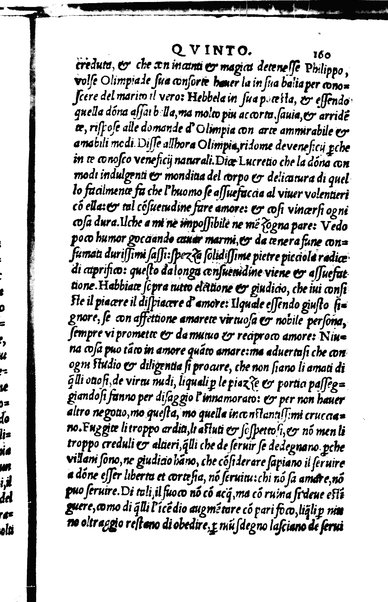 QVINTO. 160
creduta, & che con incanti & magica detenesse Philippo,
volse Olimpia de sua consorte hauer la in sua balia per cono-
scere del marito il vero: Hebbela in sua potesta, & essendo
quella dōna assai bella, ma molto piu accorta, sauia, & arridē
te, rispose alle domande d'Olimpia con arte ammirabile &
amabili modi. Disse all'hora Olimpia, ridome de veneficij ꝑche
in te conosco veneficij naturali. Dice Lucretio che la dōna con
modi indulgenti & mondita del corpo & delicatura di quel
lo facilmente fa che l'huomo se assuefaccia al viuer volentieri
cō ella: & tal cōsuetudine fare amore: & cosi vincersi ogni
cosa dura. Ilche a mi ne impossibile ne mēzogna pare: Vedo
poco humor gocciando cauar marmi, & da tenera fune con-
sumati durissimi sassi: spezza solidissime pietre picciola radice
di caprifico: questo da longa consuetudine viene & assuefat-
tione. Habbiate sopra tutto elettione & giudicio, che iui consi
ste il piacere il dispiacere d'amore: Ilquale essendo giusto si-
gnore, se con affettione amarete virtuosa & nobile persona,
sempre vi promette & da mutuo & reciproco amore: Niu-
na cosa puo tāto in amore quāto amare: ma aduertasi che con
ogni studio & diligentia si procure, che non siano li amati di
q̄lli otiosi, de virtu nudi, liquali ꝑ le piazze & portici passeg-
giandosi fanno per disaggio l'innamorato: & per non hauer
altro negotio, mo questa, mo quella inconstantissimi cruccia-
no. Fuggite li troppo arditi, li astuti & sospettosi, & nō men li
troppo creduli & altieri, q̄lli che de seruir se dedegnano. ꝑche
villani sono, ne giudicio hāno, che cōsiderar sapiano il seruire
a dōne esser liberta et cortesia, nō seruitu: chi nō sa amare, nō
puo seruire. Di tali, il fuoco nō cō acq̄, ma cō ruina si deue esti
guere, como di q̄lli l'icēdio augmētare cō pari foco, liq̄li ꝑ niu
no oltraggio restano di obedire, ꝑ niū sdegno lasciano de serui